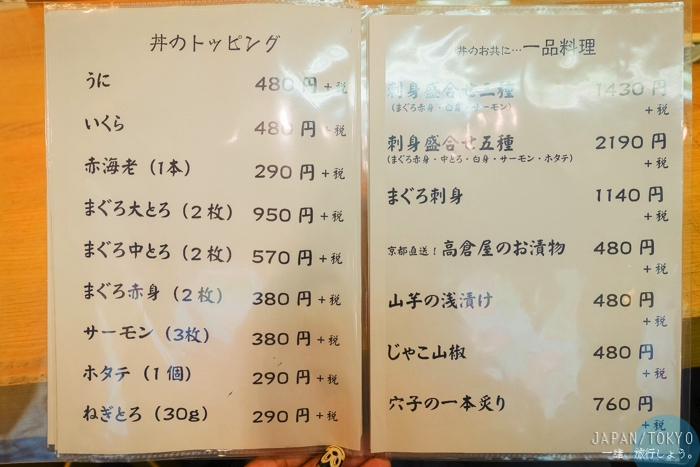 丼のトッピング
うに 480円+税
いくら 480円+税
赤海老(1本) 290円+税
まぐろ大とろ(2枚) 950円+税
まぐろ中とろ(2枚) 570円+税
まぐろ赤身(2枚) 380円+税
サーモン(3枚) 380円+税
ホタテ(1個) 290円+税
ねぎとろ(30g) 290円+税
丼のお共に…一品料理
刺身盛合せ三種 1430円
(まぐろ赤身・白身・サーモン)
+税
刺身盛合せ五種 2190円
(まぐろ赤身・中とろ・白身・サーモン・ホタテ)
+税
まぐろ刺身 1140円
+税
京都直送!高倉屋のお漬物 480円
+税
山芋の浅漬け 480円
+税
じゃこ山椒 480円
+税
穴子の一本炙り 760円
+税
JAPAN/TOKYO
一緒、旅行しよう。